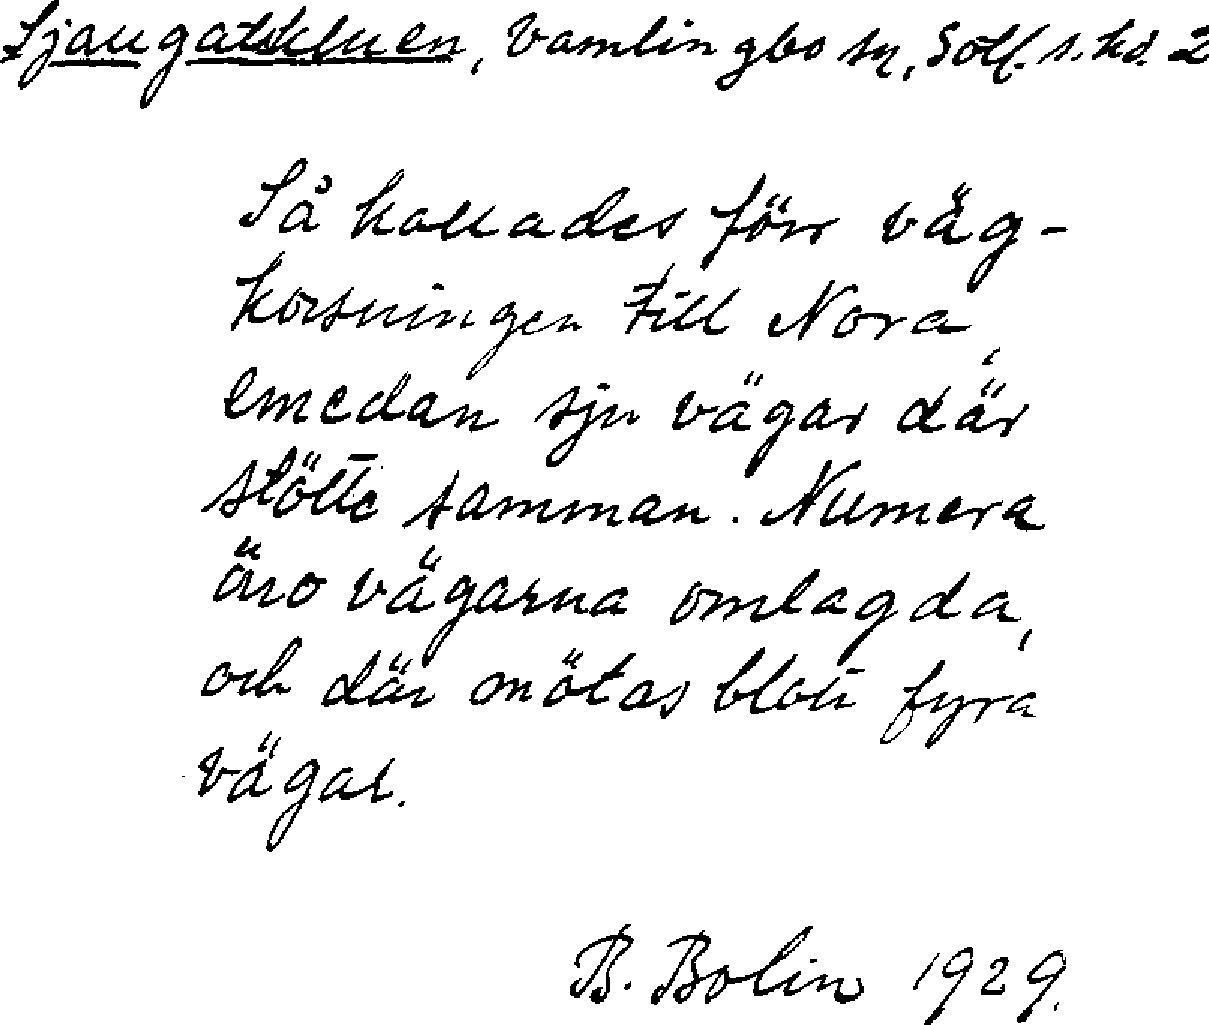 Sjaugatskluen, Vamlingbo sn, Gotl. s. hd. 2
Så kallades förr väg-
korsningen till Nora,
emedan sju vägar där
stötte samman. Numera
äro vägarna omlagda,
och där mötas blott fyra
vägar.
B. Bolin 1929.